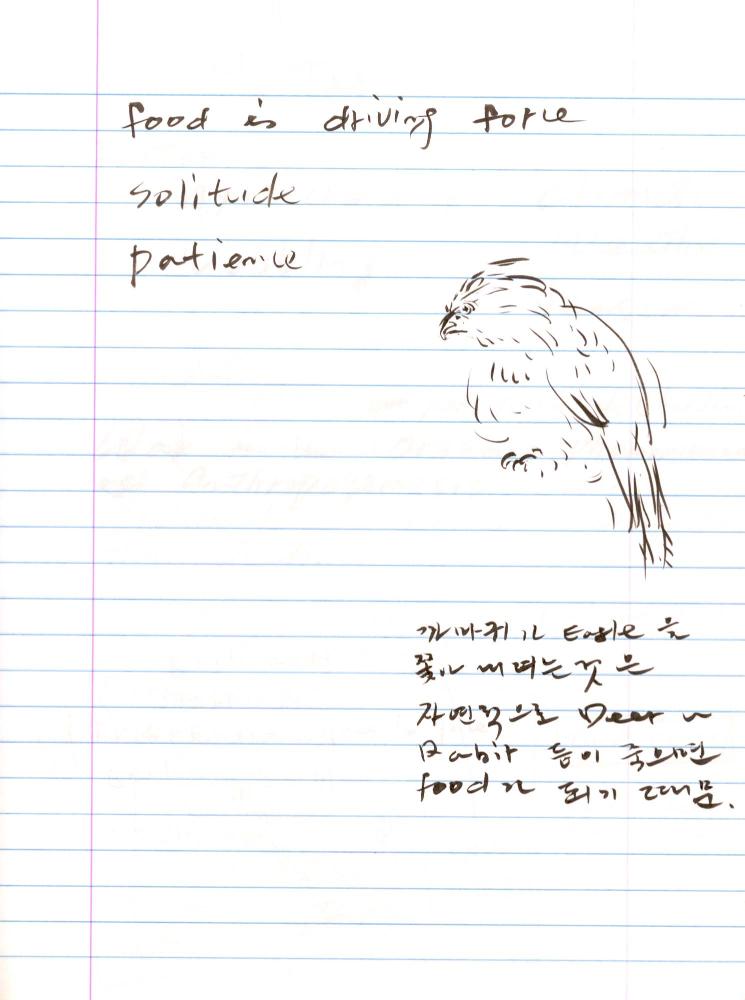 food is driving force
solitude
patience
까마귀가 Eagle 을
쫓아 내려는 것은
자연적으로 Deer 나
Rabit 등이 죽으면
food가 되기 때문.